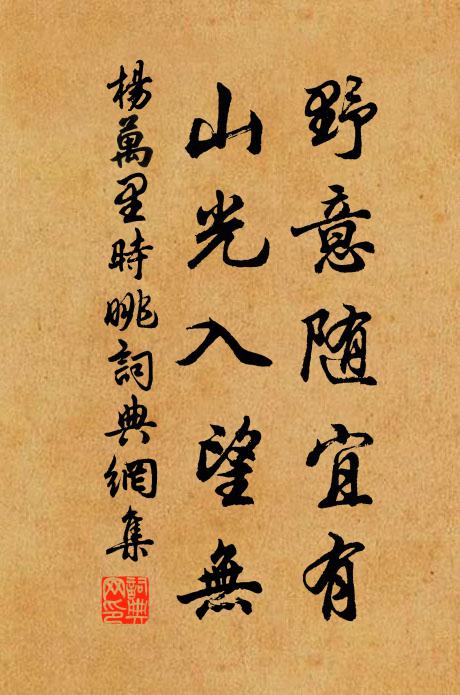 野意随宜有
山光入望無
楊萬里時眺詞典網集
詞典网印